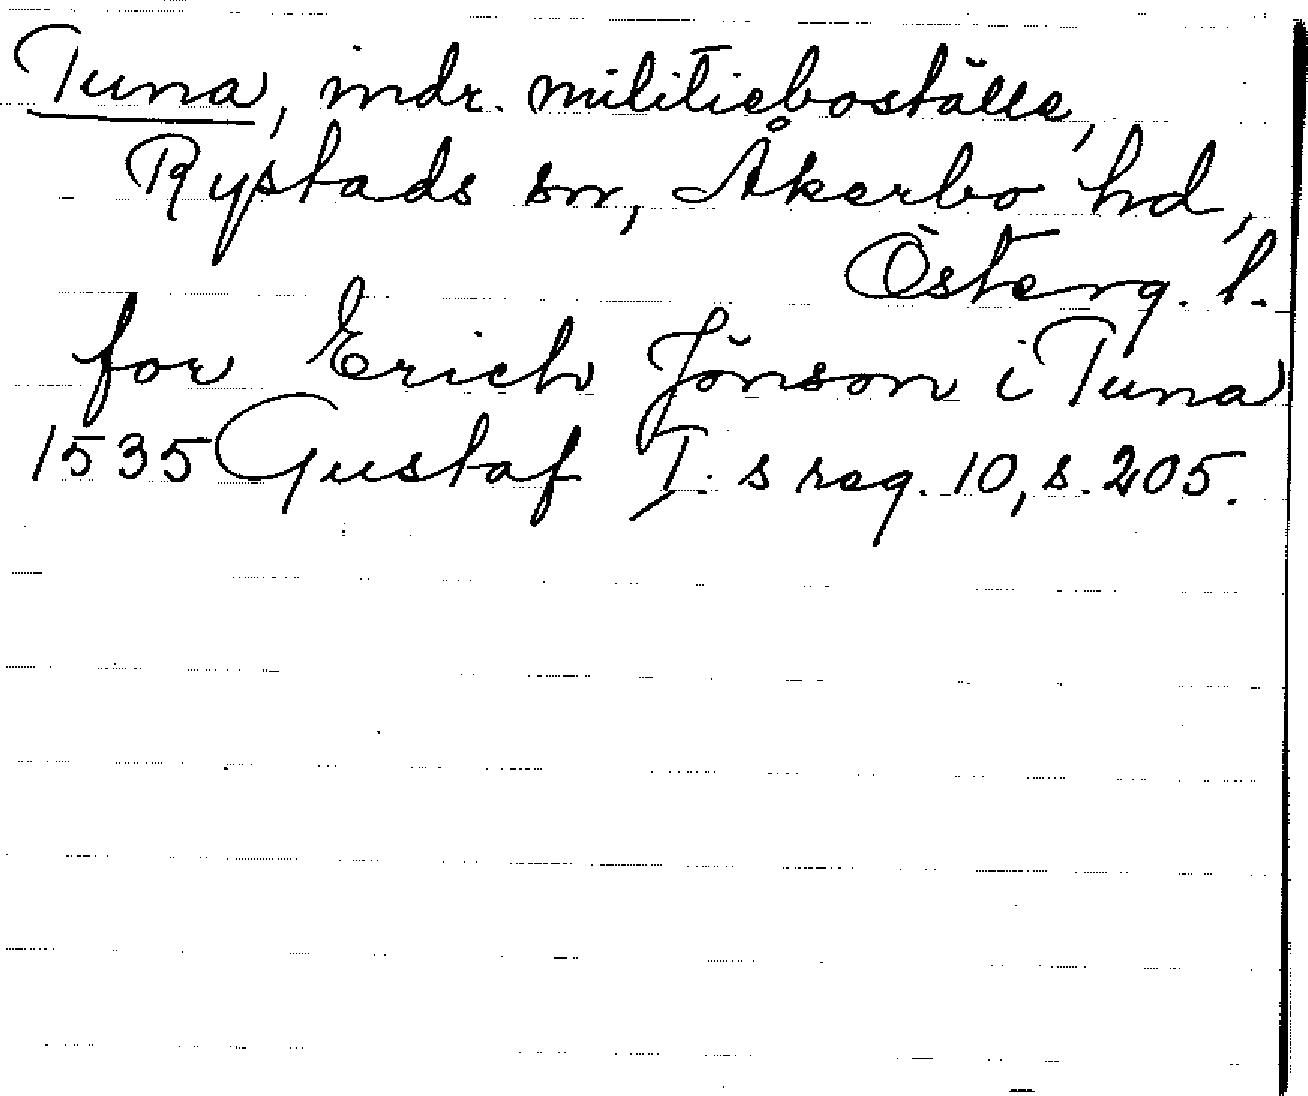 Tuna, indr. militieboställe,
Rystads sn, Åkerbo hd,
Österg. l.
for Erich Jönson i Tuna
1535 Gustaf I. s reg. 10, s. 205.